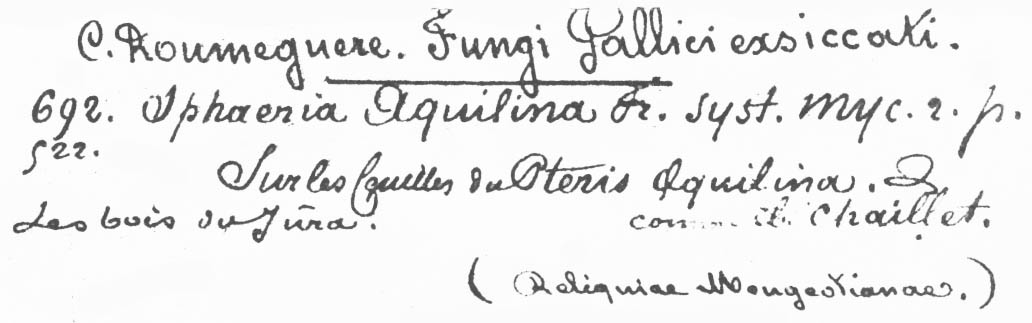 C. Roumeguere. Fungi Gallici exsiccati.
692. Sphaeria Aquilina Fr. syst. myc. 2. p.
522.
Sur les feuilles du Pteris Aquilina.
Les bois du Jura. Chaillet.
(Reliquiae Mougeotianae.)